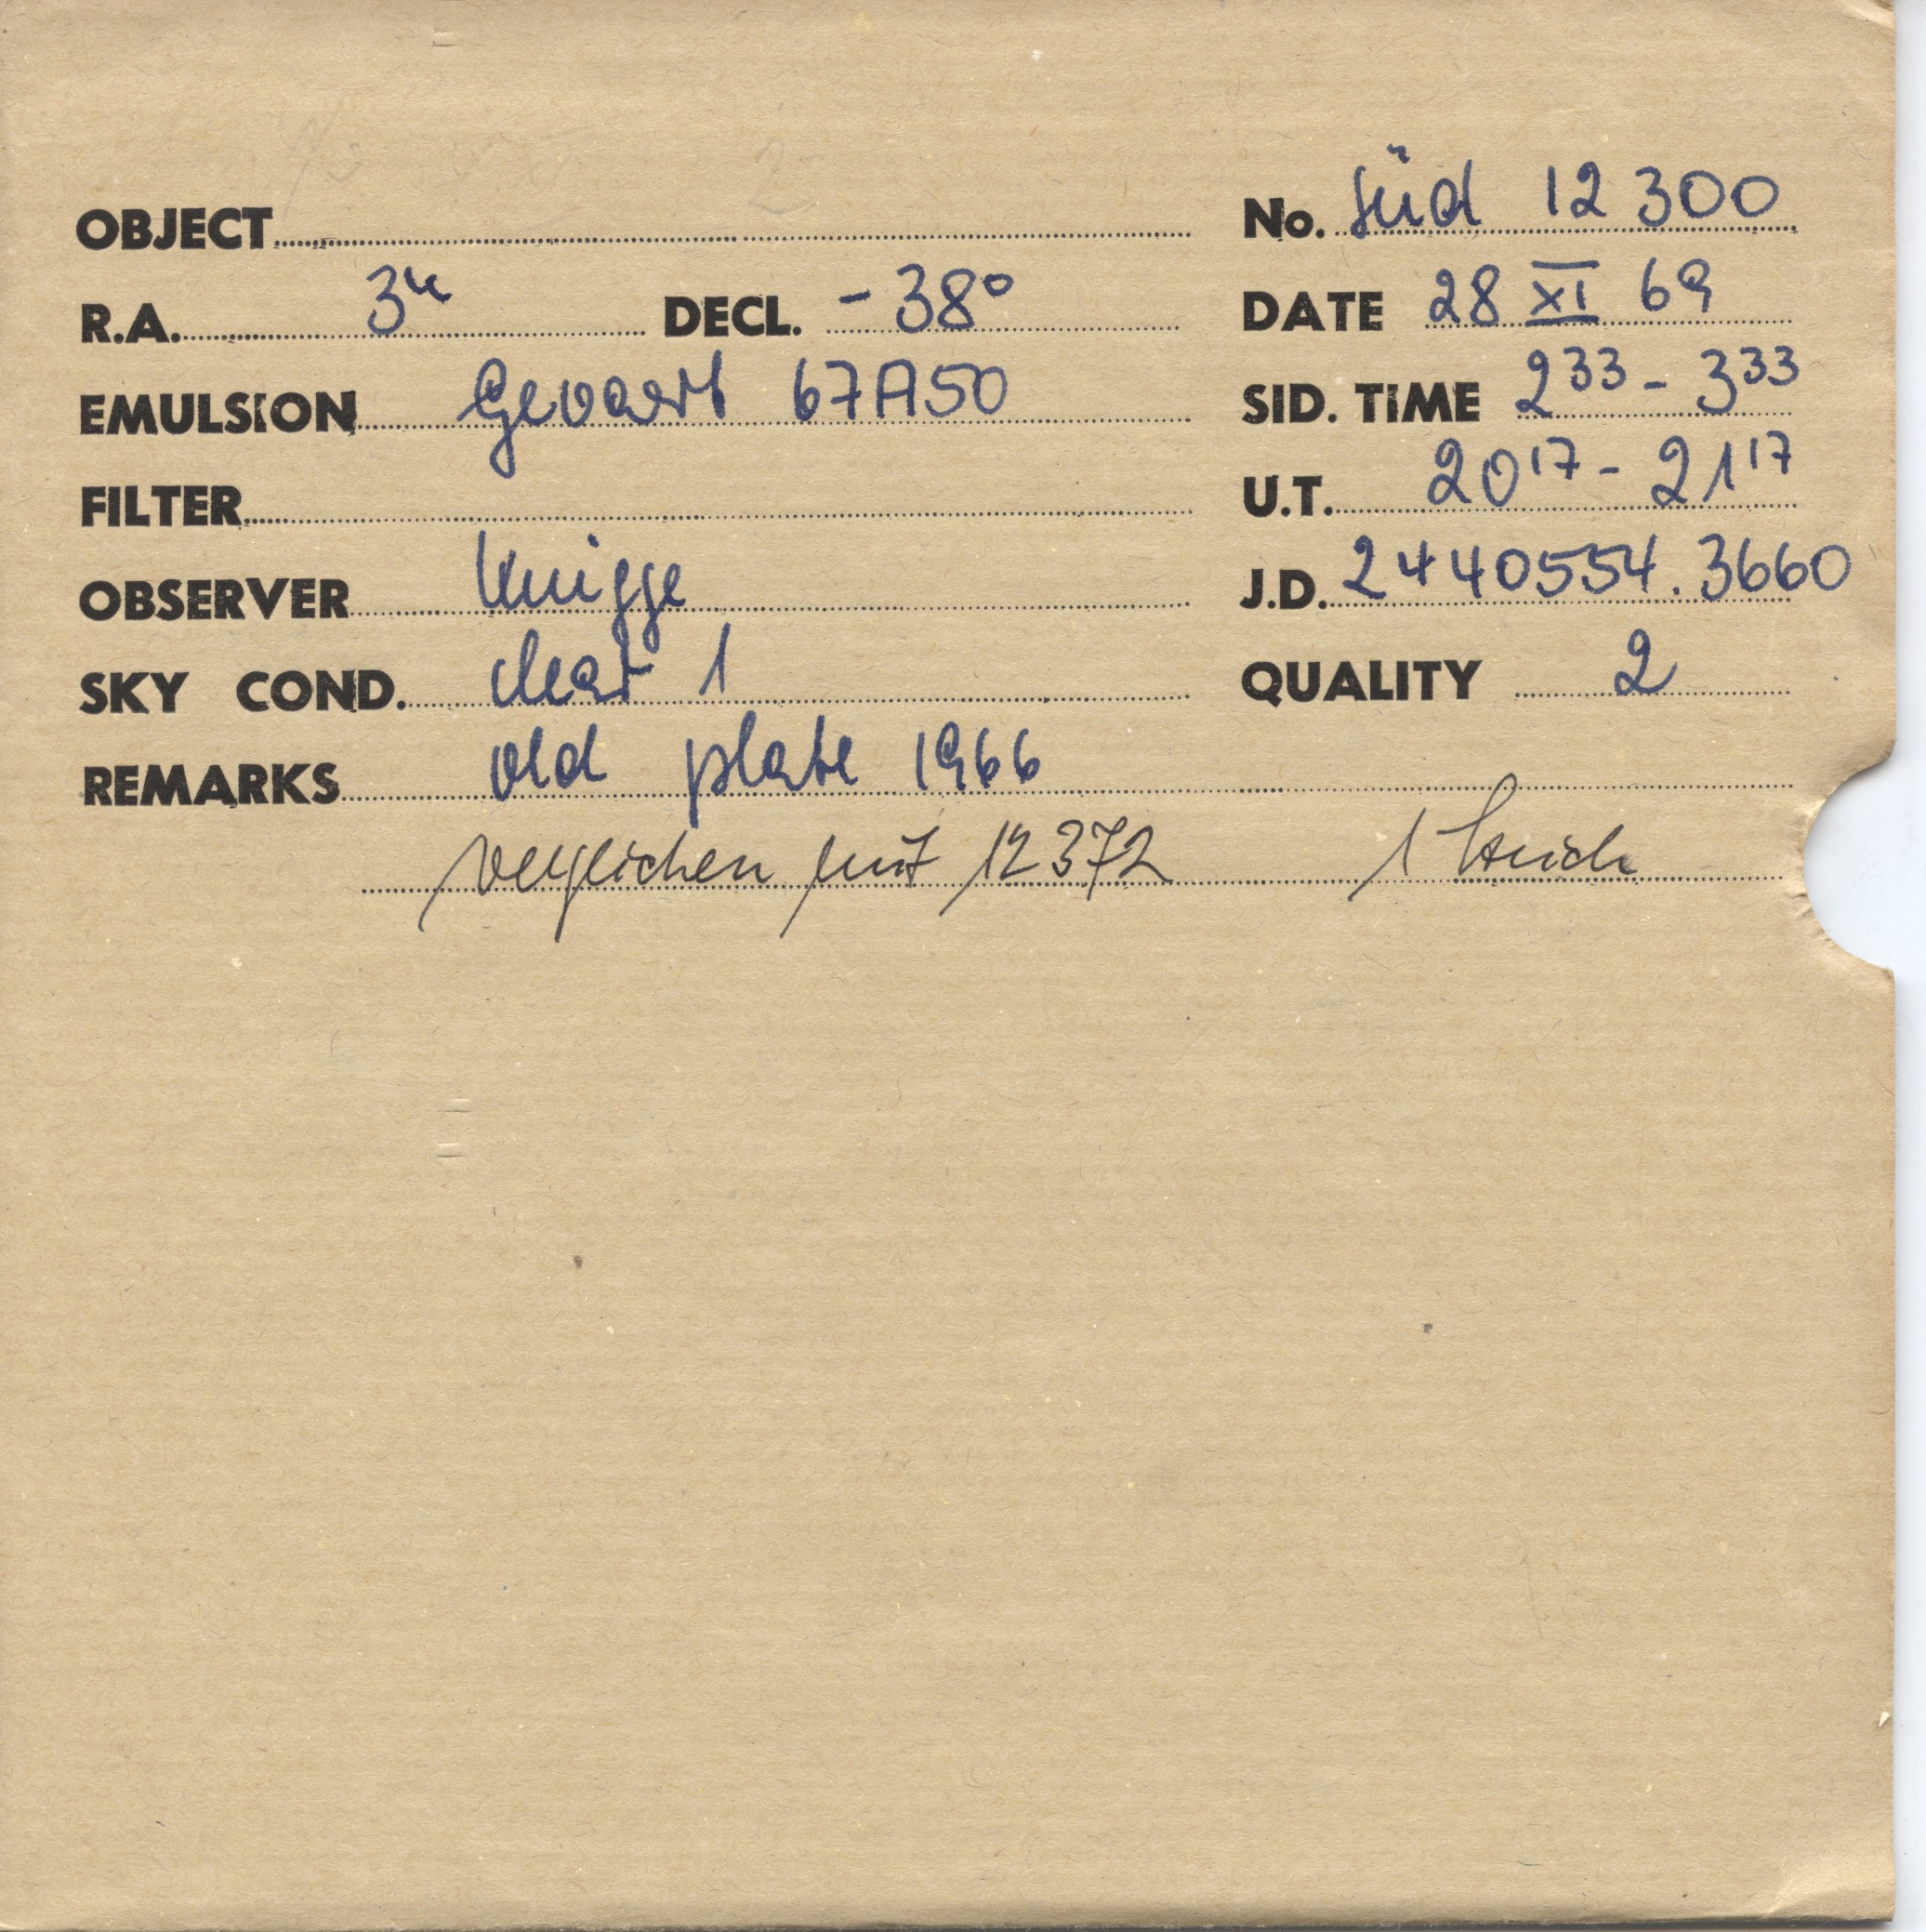 OBJECT No. Süd 12 300
R.A. 3h DECL. -38° DATE 28 XI 69
EMULSION Gevaert 67A50 SID. TIME 2 33 - 3 33
FILTER U.T. 20 17 - 21 17
OBSERVER Knigge J.D. 2440554.3660
SKY COND. clear 1 QUALITY 2
REMARKS old plate 1966
verglichen mit 12372 1 Strich